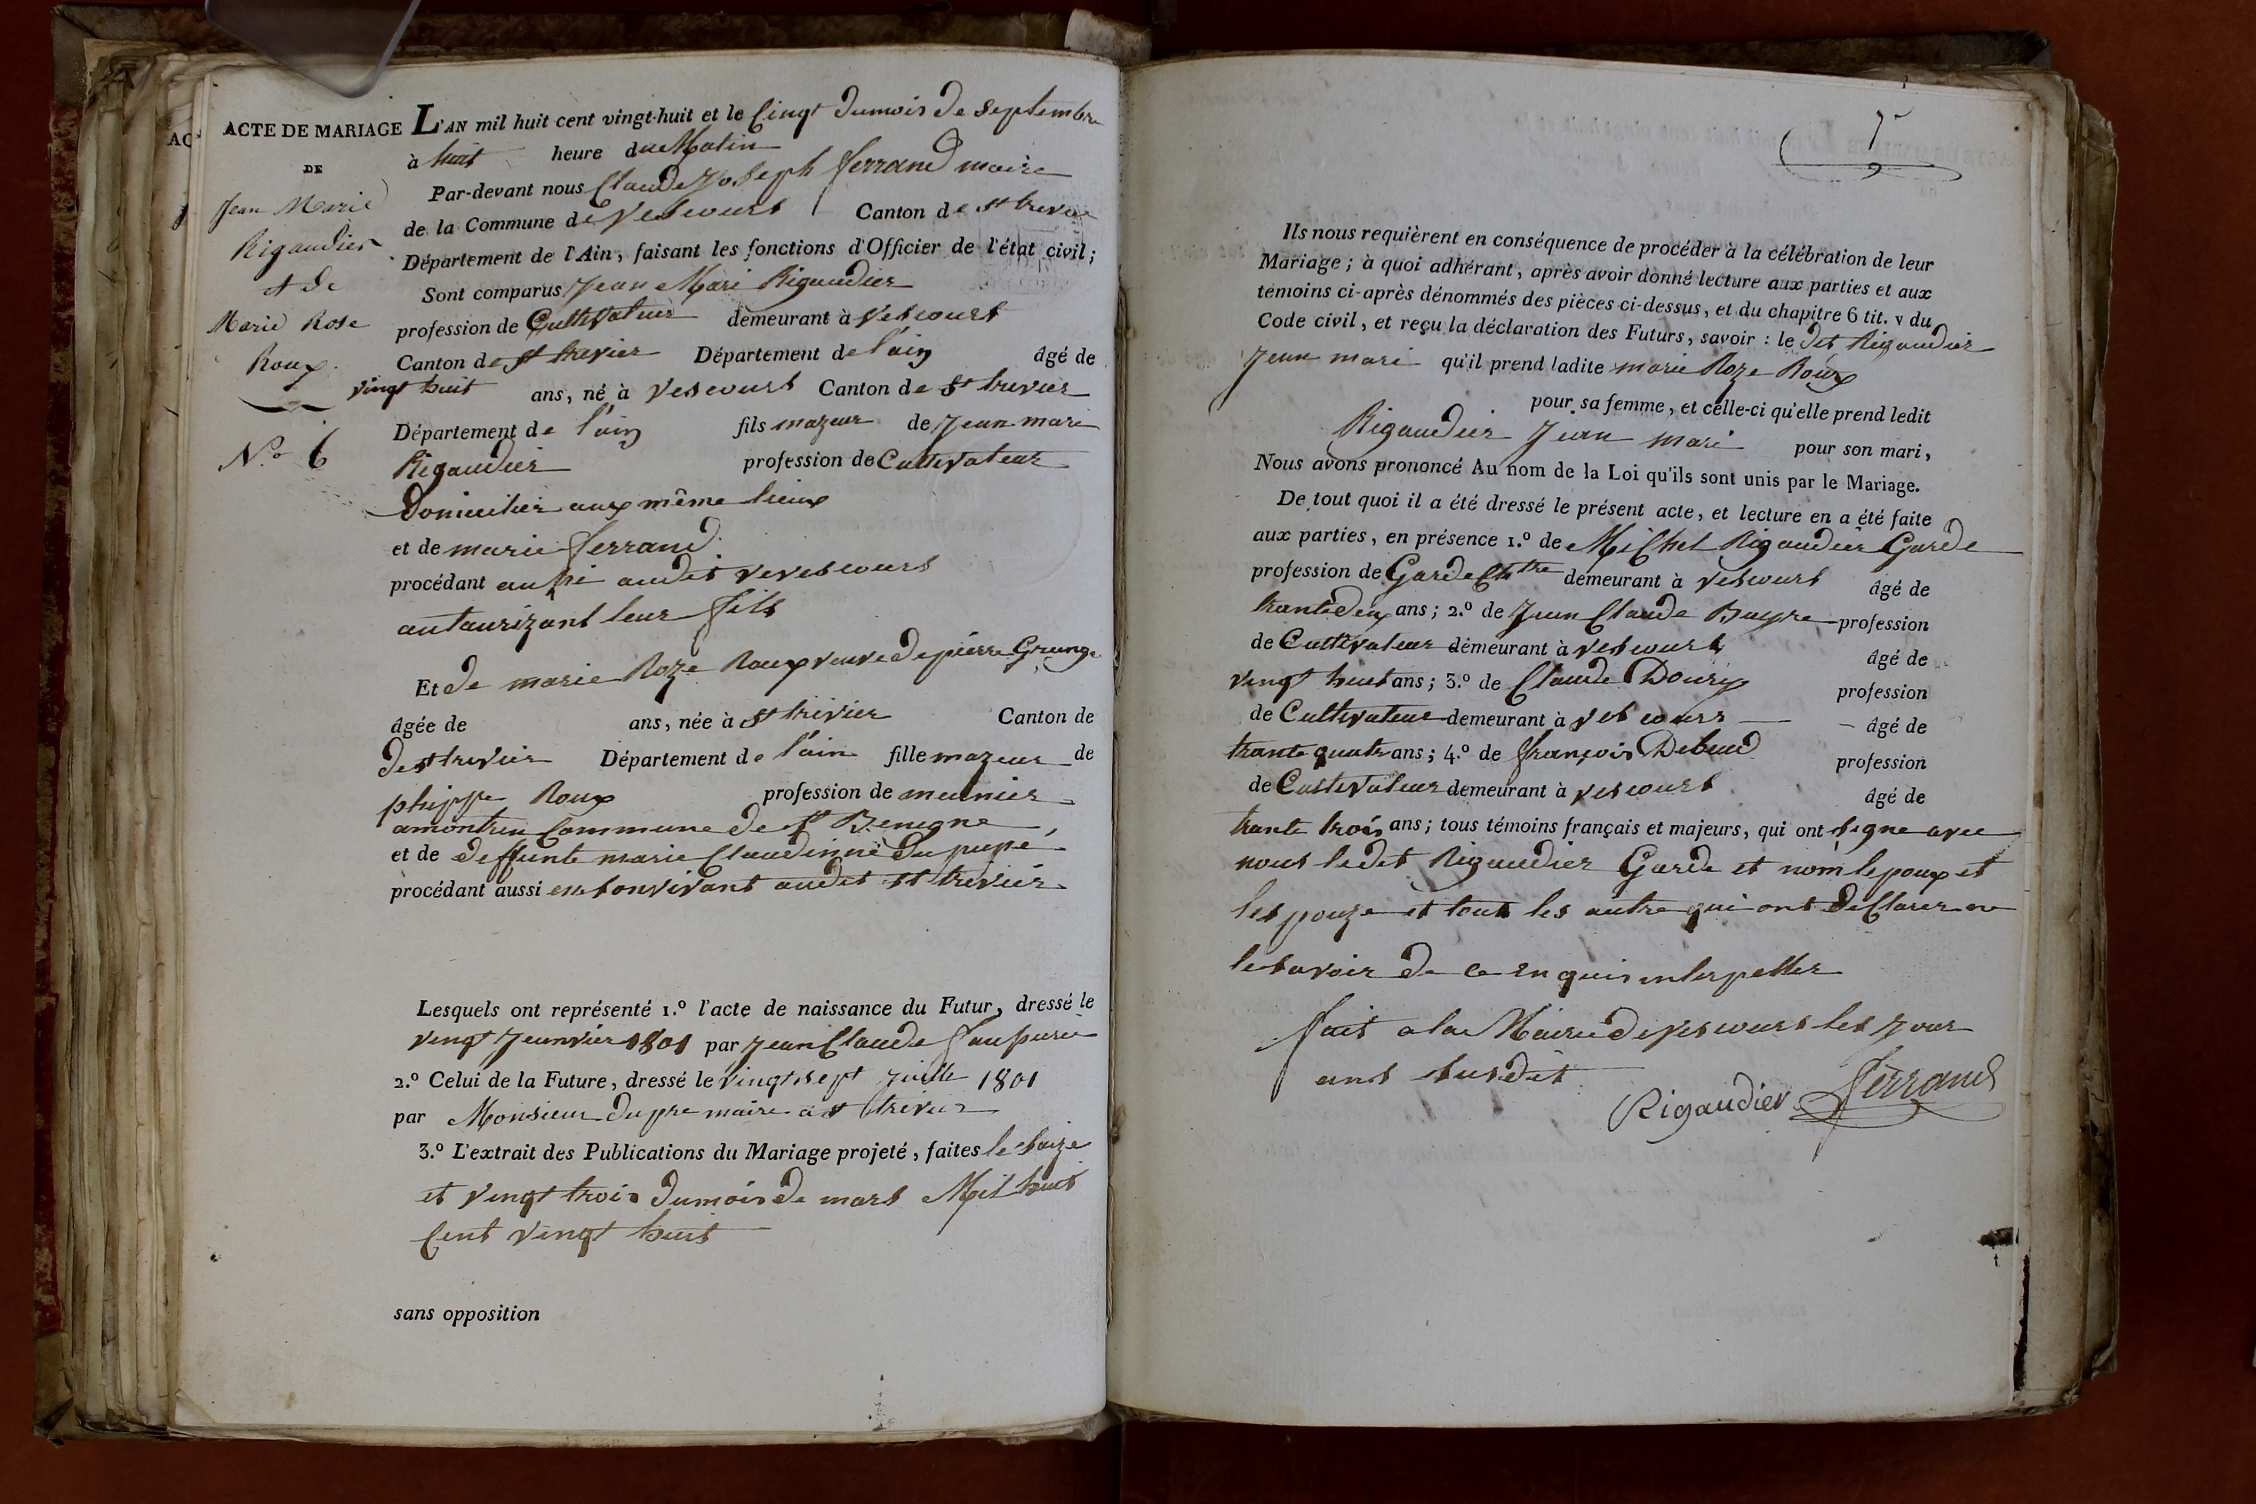 ACTE DE MARIAGE
DE
Jean Marie
Rigaudier
et de
Marie Rose
Roux
N.o 6
L'AN mil huit cent vingt-huit et le Cinqt dumois de Septembre
à huit heure du Matin
Par-devant nous Claude Joseph ferrand maire
de la Commune de Vescours Canton de st trevier
Département de l'Ain, faisant les fonctions d'Officier de l'état civil;
Sont comparus Jean Mari Rigaudier
profession de Cultivateur demeurant à Vescours
Canton de st trevier Département de l'ain âgé de
vingt huit ans, né à Vescours Canton de St trevier
Département de l'ain fils mazeur de Jean mari
Rigaudier profession de Cultivateur
Domicilier aux même lieux
et de marie ferrand
procédant audit
autaurizant leur fils
Et de marie Roze Roux veuve de pierre Grange
âgée de ans, née à St trivier Canton de
de st trevier Département de l'ain fille mazeur de
phippe Roux profession de meunier
Commune de st Benigne
et de deffunte marie Claudinne Dupupe
procédant aussi en sonvivant audit st trivier
Lesquels ont représenté 1.o l'acte de naissance du Futur, dressé le
vingt Jeanvier 1801 par Jean Claude
2.o Celui de la Future, dressé le vingt sept Juille 1801
par Monsieur dupre maire a st trevier
3.o L'extrait des Publications du Mariage projeté, faites le saize
et vingt trois dumois de mars Mil huit
Cent vingt huit
sans opposition
Ils nous requièrent en conséquence de procéder à la célébration de leur
Mariage; à quoi adhérant, après avoir donné lecture aux parties et aux
témoins ci-après dénommés des pièces ci-dessus, et du chapitre 6 tit. v du
Code civil, et reçu la déclaration des Futurs, savoir: le dit Rigaudier
Jean mari qu'il prend ladite marie Roze Roux
pour sa femme, et celle-ci qu'elle prend ledit
Rigaudier Jean mari pour son mari,
Nous avons prononcé Au nom de la Loi qu'ils sont unis par le Mariage.
De tout quoi il a été dressé le présent acte, et lecture en a été faite
aux parties, en présence 1.o de Michel Rigaudier Garde
profession de Garde Chtre demeurant à Vescours âgé de
trante deux ans; 2.o de Jean Claude Buyre profession
de Cultivateur demeurant à vescours âgé de
vingt huit ans; 3.o de Claude Doury profession
de Cultivateur demeurant à vescours âgé de
trante quatr ans; 4.o de françois Debeud profession
de Cultivateur demeurant à vescours âgé de
trante trois ans; tous témoins français et majeurs, qui ont signe avec
nous ledit Rigaudier Garde et nom lepoux et
lespouze et tous les autre qui ont declarer ne
le savoir de ce enquis interpeller
fait a la Mairie de vescours les Jour
ans susdit
Rigaudier ferrand